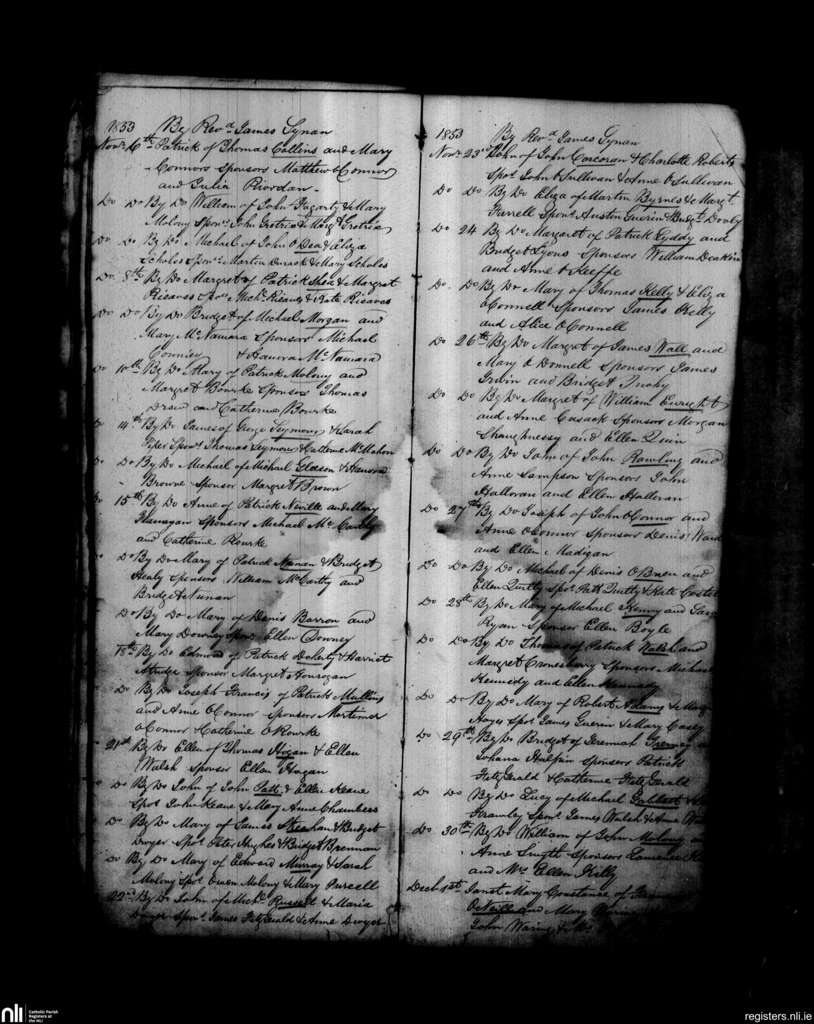 1853 By Revd James Synan
Novr 6th Patrick of Thomas Collins and Mary
Connors Sponsors Matthew O Connor
and Julia Riordan
Do Do By Do William of John Fogarty & Mary
Molony Sponrs John &
Do Do By Do Michael of John O Dea & Eliza
Scholes Sponrs Martin Durack & Mary Scholes
Do 8th By Do Margret of Patrick Shea & Margret
Sponr & Kate
Do Do By Do Bridget of Michael Morgan and
Mary McNamara Sponsors Michael
& Hanora McNamara
Do 10th By Do Mary of Patrick Molony and
Margret Bourke Sponsors Thomas
and Catherine Bourke
14th By Do James of George Seymour & Sarah
Piper Sponrs Thomas Seymour & Catherine McMahon
Do Do By Do Michael of Michael Gleeson & Hanora
Browne Sponsor Margret Brown
Do 15th By Do Anne of Patrick Neville and Mary
Flanagan Sponsors Michael McCarthy
and Catherine Rourke
Do By Do Mary of Patrick Nunan & Bridget
Healy Sponsors William McCarthy and
Bridget Nunan
Do By Do Mary of Denis Barron and
Mary Downey Sponr Ellen Downey
18th By Do Edmond of Patrick Doherty & Harriet
Sponsor Margret Honrogan
Do By Do Joseph Francis of Patrick Mullins
and Anne O Connor Sponsors Mortimer
O Connor & Catherine O Rourke
21st By Do Ellen of Thomas Hogan & Ellen
Walsh Sponsor Ellen Hogan
Do By Do John of John Patt & Ellen Keane
Spors John Keane & Mary Anne Chambers
Do By Do Mary of James Meehan & Bridget
Dwyer Spors Peter Hughes & Bridget Brennan
Do By Do Mary of Edward Murray & Sarah
Molony Spors Owen Molony & Mary Purcell
22nd By Do John of Michl Russell & Maria
Dwyer Sponrs James FitzGerald & Anne Dwyer
1853 By Revd James Synan
Novr 23rd John of John Corcoran & Charlotte Roberts
Spors John O Sullivan & Anne O Sullivan
Do Do By Do Eliza of Martin Byrnes & Margt
Farrell Sponrs Austin Guerin & Bridgt
Do 24 By Do Margaret of Patrick Lyddy and
Bridget Lyons Sponsors William
and Anne O Keeffe
Do Do By Do Mary of Thomas Kelly & Eliza
O Connell Sponsors James Kelly
and Alice O Connell
Do 26th By Do Margret of James Wall and
Mary O Donnell Sponsors James
and Bridget
Do Do By Do Margret of William Enright
and Anne Cusack Sponsors Morgan
Shaughnessy and Ellen Quin
Do Do By Do John of John Rawling and
Anne Sampson Sponsors John
Halloran and Ellen Halloran
Do 27th By Do Joseph of John O Connor and
Anne O Connor Sponsors Denis Ward
and Ellen Madigan
Do Do By Do Michael of Denis O Brien and
Ellen Quilty Spors Patt Quilty & Kate
Do 28th By Do Mary of Michael Kenny and
Ryan Sponsor Ellen Boyle
Do Do By Do Thomas of Patrick Walsh and
Margret Sponsors Michael
Kennedy and Ellen Kennedy
Do Do By Do Mary of Robert Adams &
Hayes Spors James Guerin & Mary Casey
Do 29th By Do Bridget of Jeremiah
Johana Halpin Sponsors Patrick
FitzGerald & Catherine FitzGerald
Do Do By Do Lucy of Michael &
Frawley Sponrs James Walsh & Anne
Do 30th By Do William of John Molony
Anne Smyth Sponsors Laurence
and Mrs Ellen Kelly
Decr 1st Janet Mary Constance of
O Neill and Mary Waring
John Waring &
nli
Catholic Parish
Registers at
the NLI
registers.nli.ie